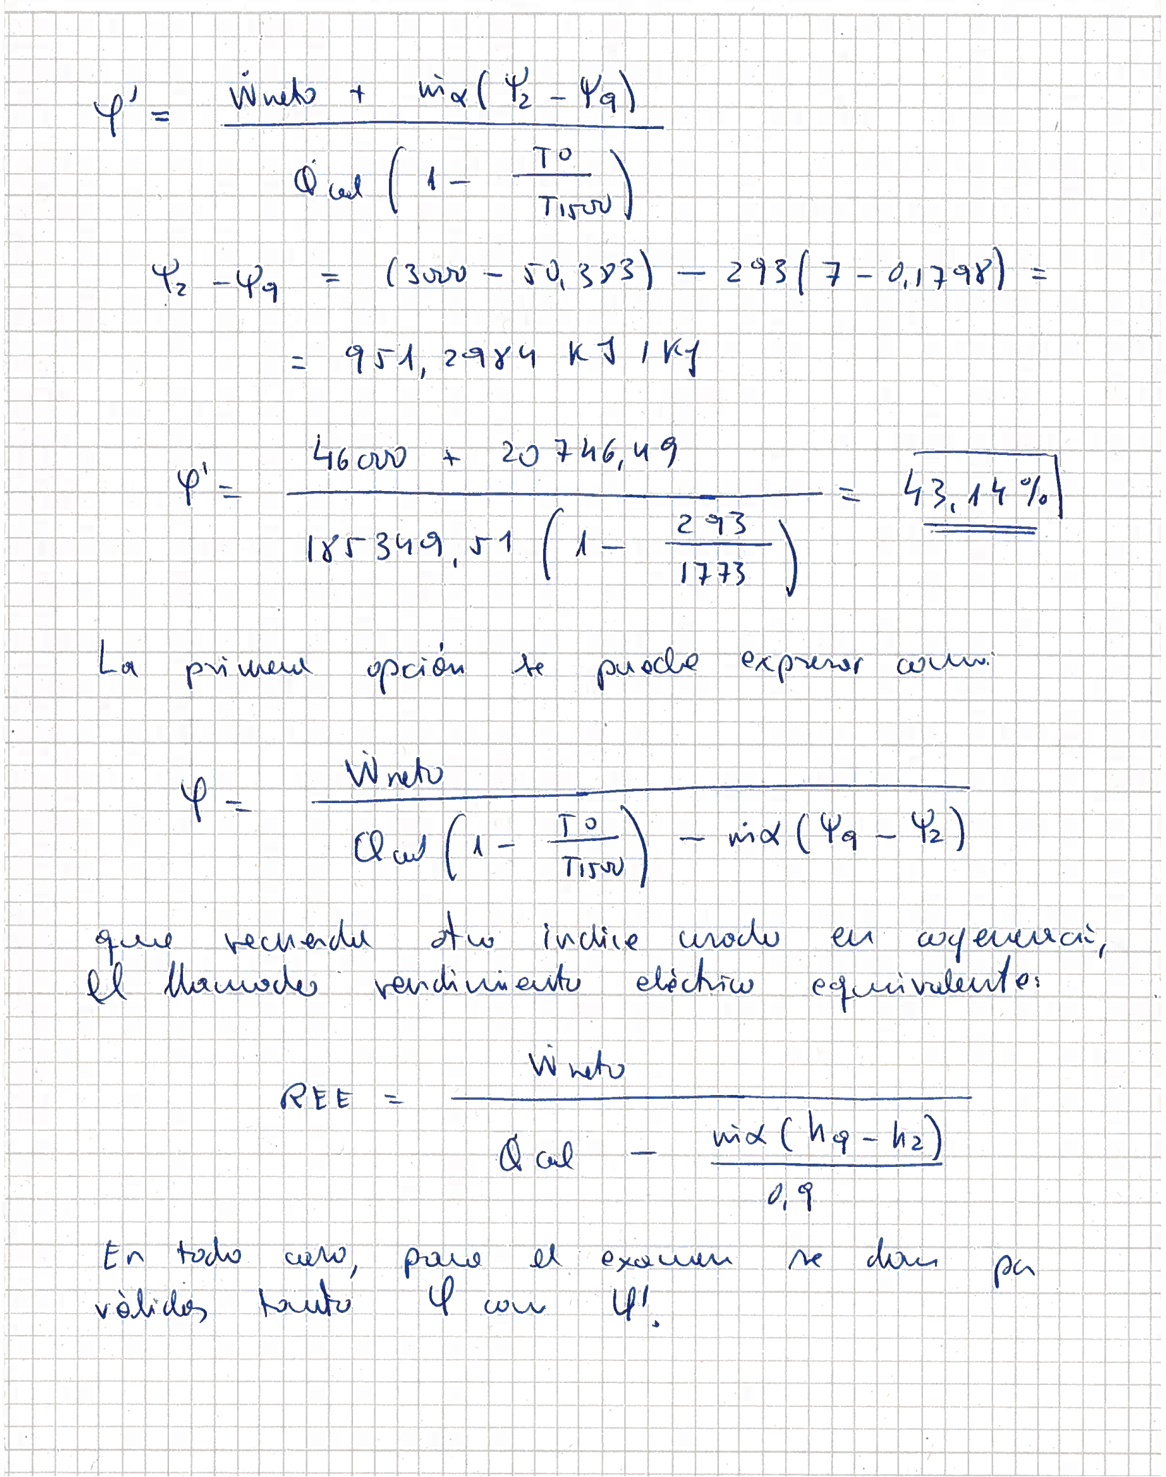 φ' = (Ẇneto + ṁα(Ψ2 - Ψ9)) / (Q̇cal (1 - T0/T1500))
Ψ2 - Ψ9 = (3000 - 50,383) - 293(7 - 0,1798) =
= 951,2984 KJ/Kg
φ' = (46000 + 20746,49) / (185349,51 (1 - 293/1773)) = 43,14%
La primera opción se puede expresar como:
φ = Ẇneto / (Q̇cal (1 - T0/T1500) - ṁα(Ψ9 - Ψ2))
que recuerda otro índice usado en cogeneración,
el llamado rendimiento eléctrico equivalente:
REE = Ẇneto / (Q̇cal - ṁα(h9 - h2)/0,9)
En todo caso, para el examen se dan por
válidos tanto φ como φ'.